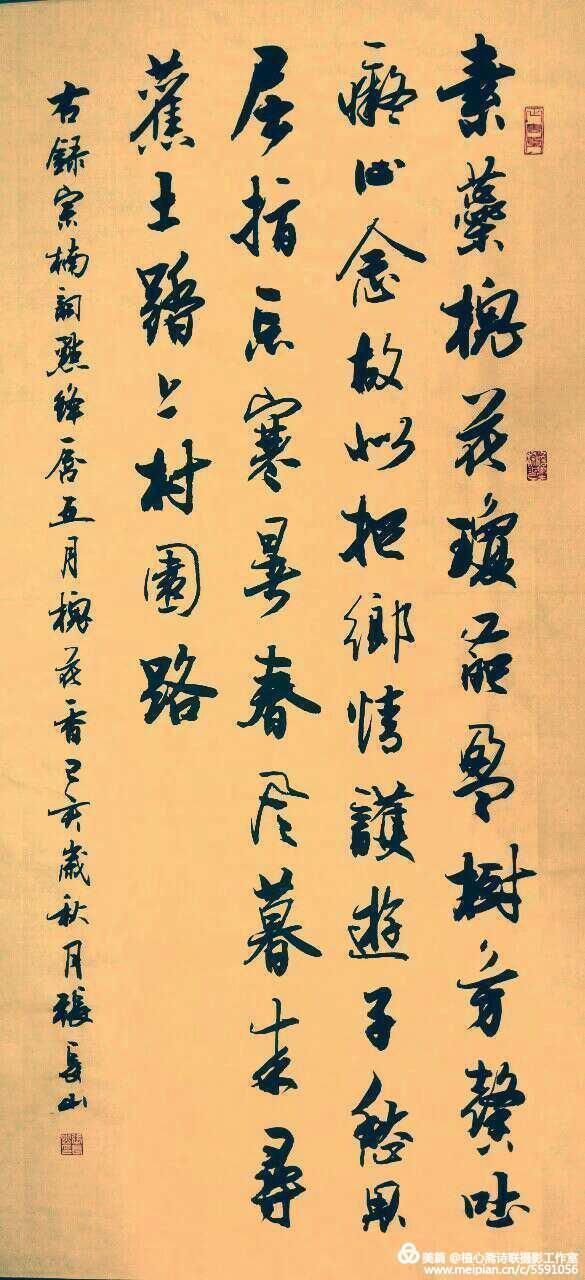 素蘂槐花瓊葩樹々芳馨吐
癡心念故似把鄉情護遊子愁思
屈指忘寒暑春尽暮来尋
舊土踏上村園路
右録宗楠詞點絳唇五月槐花香己亥歲秋月張長山
美篇 @植心斋诗联摄影工作室
www.meipian.cn/c/5591056